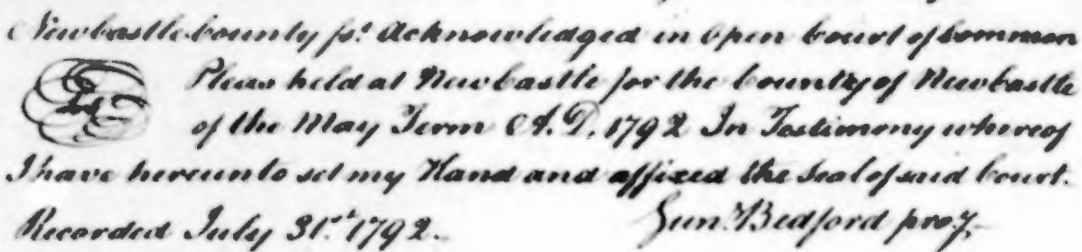 Newcastle County ss. Acknowledged in Open Court of Common
LS Pleas held at New Castle for the County of Newcastle
of the May Term A.D. 1792 In Testimony whereof
I have hereunto set my Hand and affixed the Seal of said Court.
Recorded July 31st 1792.. Gun.g Bedford proy.